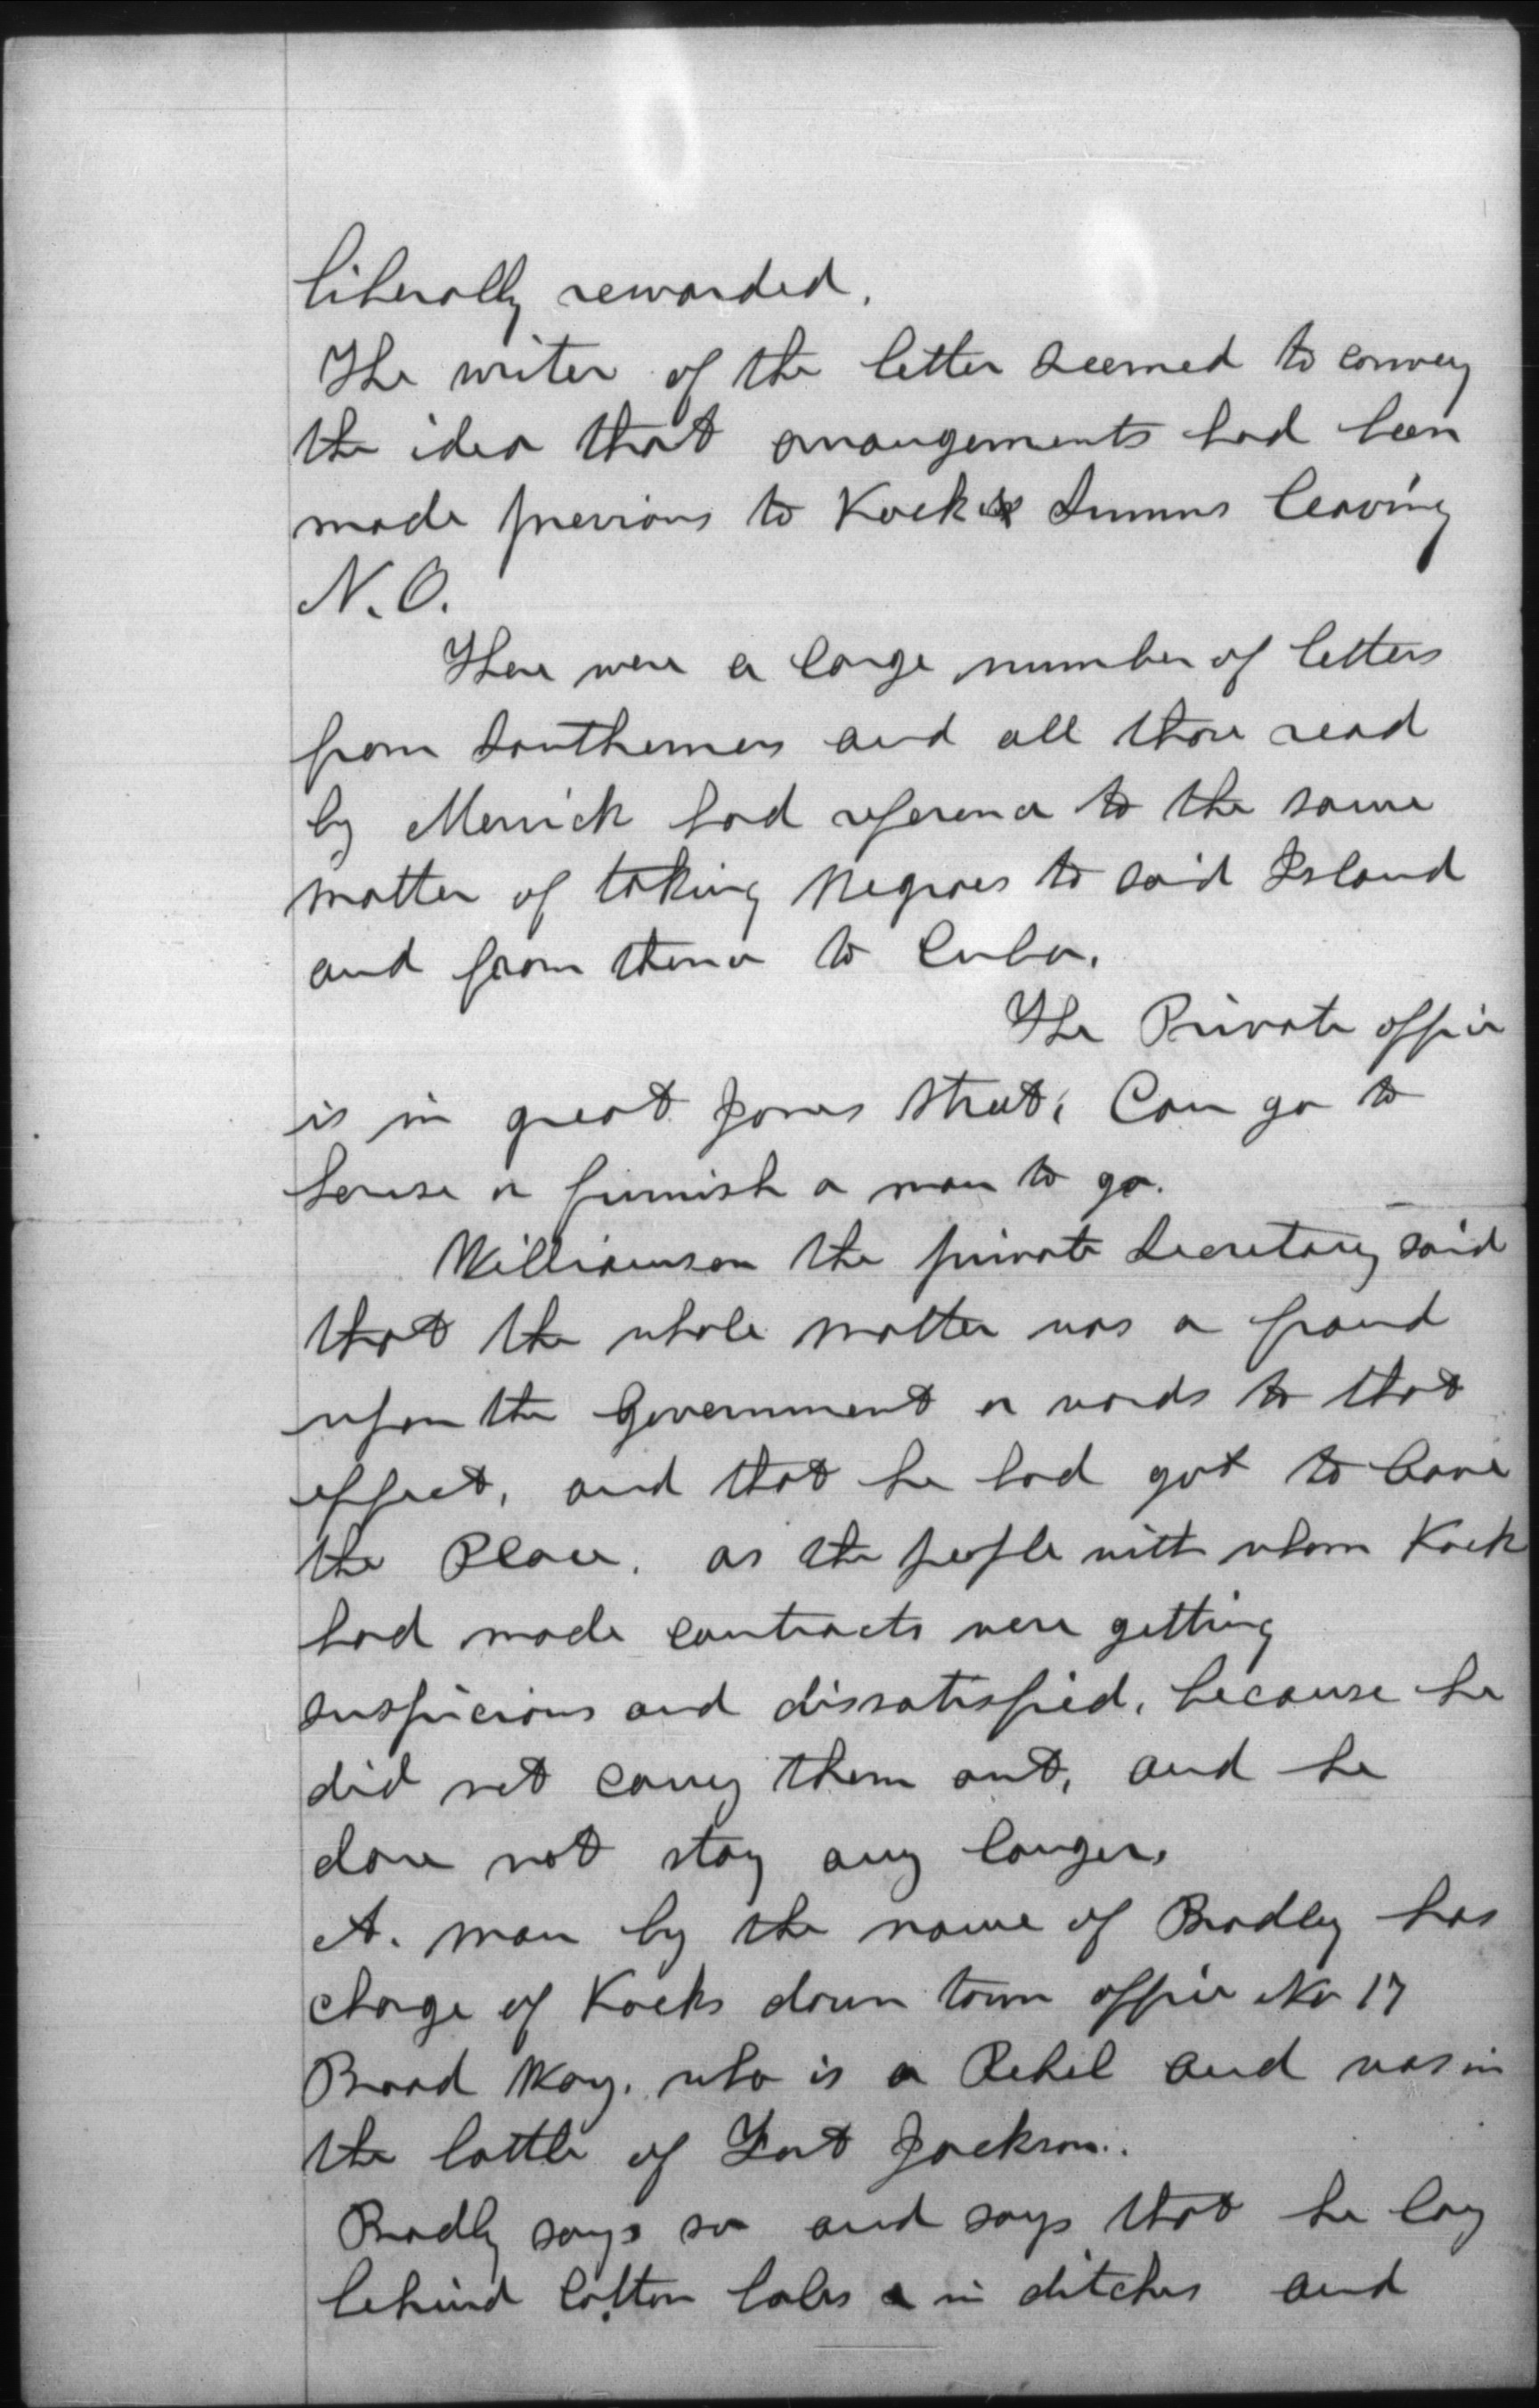 liberally rewarded.
The writer of the letter seemed to convey
the idea that arrangements had been
made previous to Kock & leaving
N. O.
There were a large number of letters
from Southerners and all those read
by Merrick had reference to the same
matter of taking Negroes to said Island
and from thence to Cuba.
The Private office
is in great Jones Street. Can go to
house or furnish a man to go.
Williamson the private Secretary said
that the whole matter was a fraud
upon the Government or words to that
effect, and that he had got to leave
the Place. as the people with whom Kock
had made contracts were getting
suspicious and dissatisfied, because he
did not carry them out, and he
dare not stay any longer.
A. man by the name of Bradley has
charge of Kocks down town office No 17
Broad Way. who is a Rebel and was in
the battle of Fort Jackson.
Bradly says so and says that he lay
behind Cotton bales in ditches and